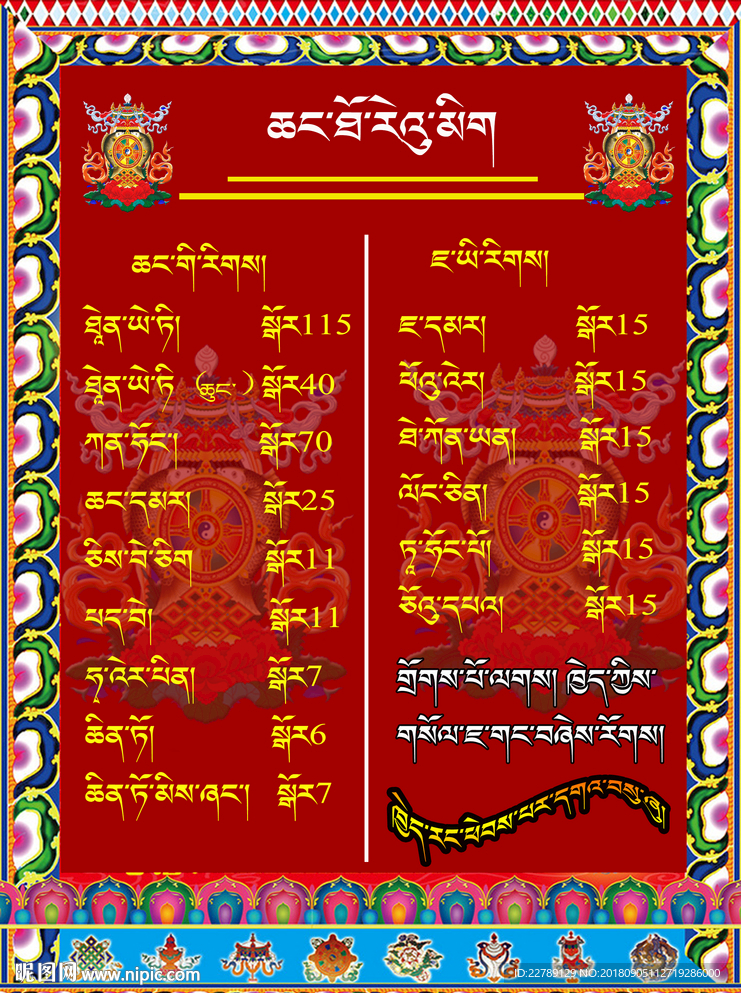 ཆང་ཐོ་རེའུ་མིག
ཆང་གི་རིགས།
ཐཱེན་ཡེ་ཏི། སྒོར115
ཐཱེན་ཡེ་ཏི (ཆུང་) སྒོར40
ཀན་ཧོང་། སྒོར70
ཆང་དམར། སྒོར25
ཅིས་བེ་ཅིག སྒོར11
པད་བེ། སྒོར11
ཧཱ་འེར་པིན། སྒོར7
ཆིན་ཏོ། སྒོར6
ཆིན་ཏོ་མིས་ཞང་། སྒོར7
ཇ་ཡི་རིགས།
ཇ་དམར། སྒོར15
ཕོའུ་འེར། སྒོར15
ཐེ་ཀོན་ཡན། སྒོར15
ལོང་ཅིན། སྒོར15
ཏཱ་ཧོང་པོ། སྒོར15
ཅོའུ་དཔལ། སྒོར15
གྲོགས་པོ་ལགས། ཁྱེད་ཀྱིས་
གསོལ་ཇ་གང་བཞེས་རོགས།
ཁྱེད་རང་ཕེབས་པར་དགའ་བསུ་ཞུ།
昵图网 www.nipic.com
ID:22789129 NO:20180905112719286000